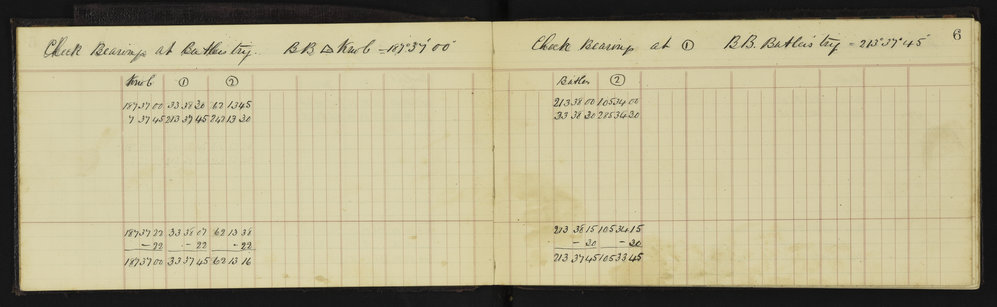 Check Bearings at Batleis try. BB △ Knob = 187°37'00"
Knob ① ②
187 37 00 33 38 30 62 13 45
7 37 45 213 37 45 242 13 30
187 37 22 33 38 07 62 13 38
- 22 - 22 - 22
187 37 00 33 37 45 62 13 16
6
Check Bearings at ① B.B. Batleis try = 213°37'45"
Batleis ②
213 38 00 105 34 00
33 38 30 285 34 30
213 38 15 105 34 15
- 30 - 30
213 37 45 105 33 45